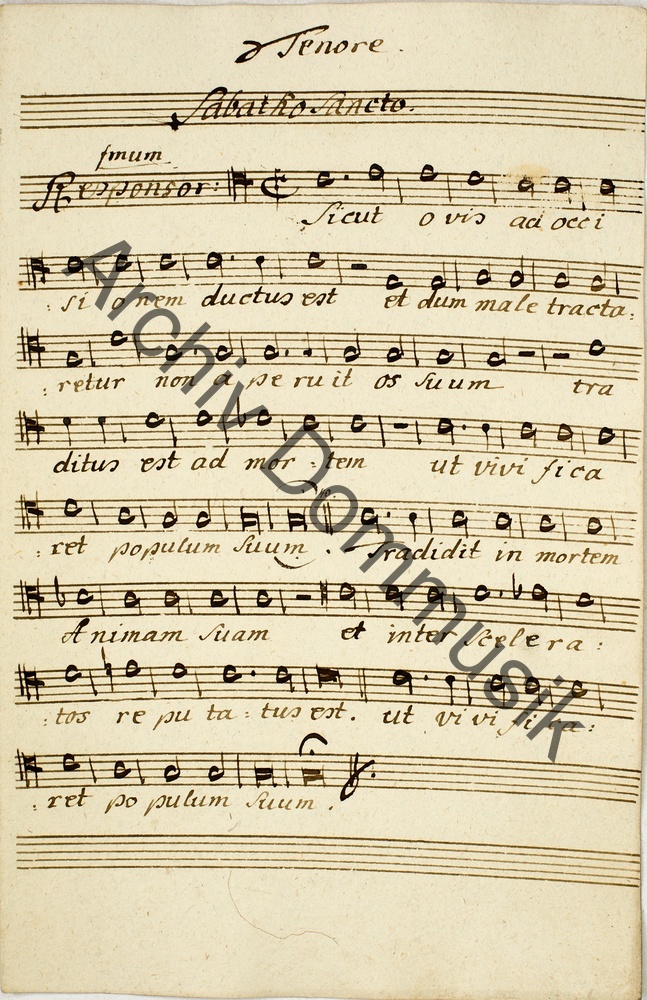 Tenore.
Sabatho Sancto.
1mum
Responsor:
Sicut ovis ad occi
: si onem ductus est et dum male tracta:
: retur non a pe ruit os suum tra
ditus est ad mor - tem ut vivi fica
: ret populum suum. Tradidit in mortem
Animam suam et inter scelera:
: tos re pu ta: tus est. ut vi vi fi ca:
: ret po pulum suum.
Archiv Dommusik